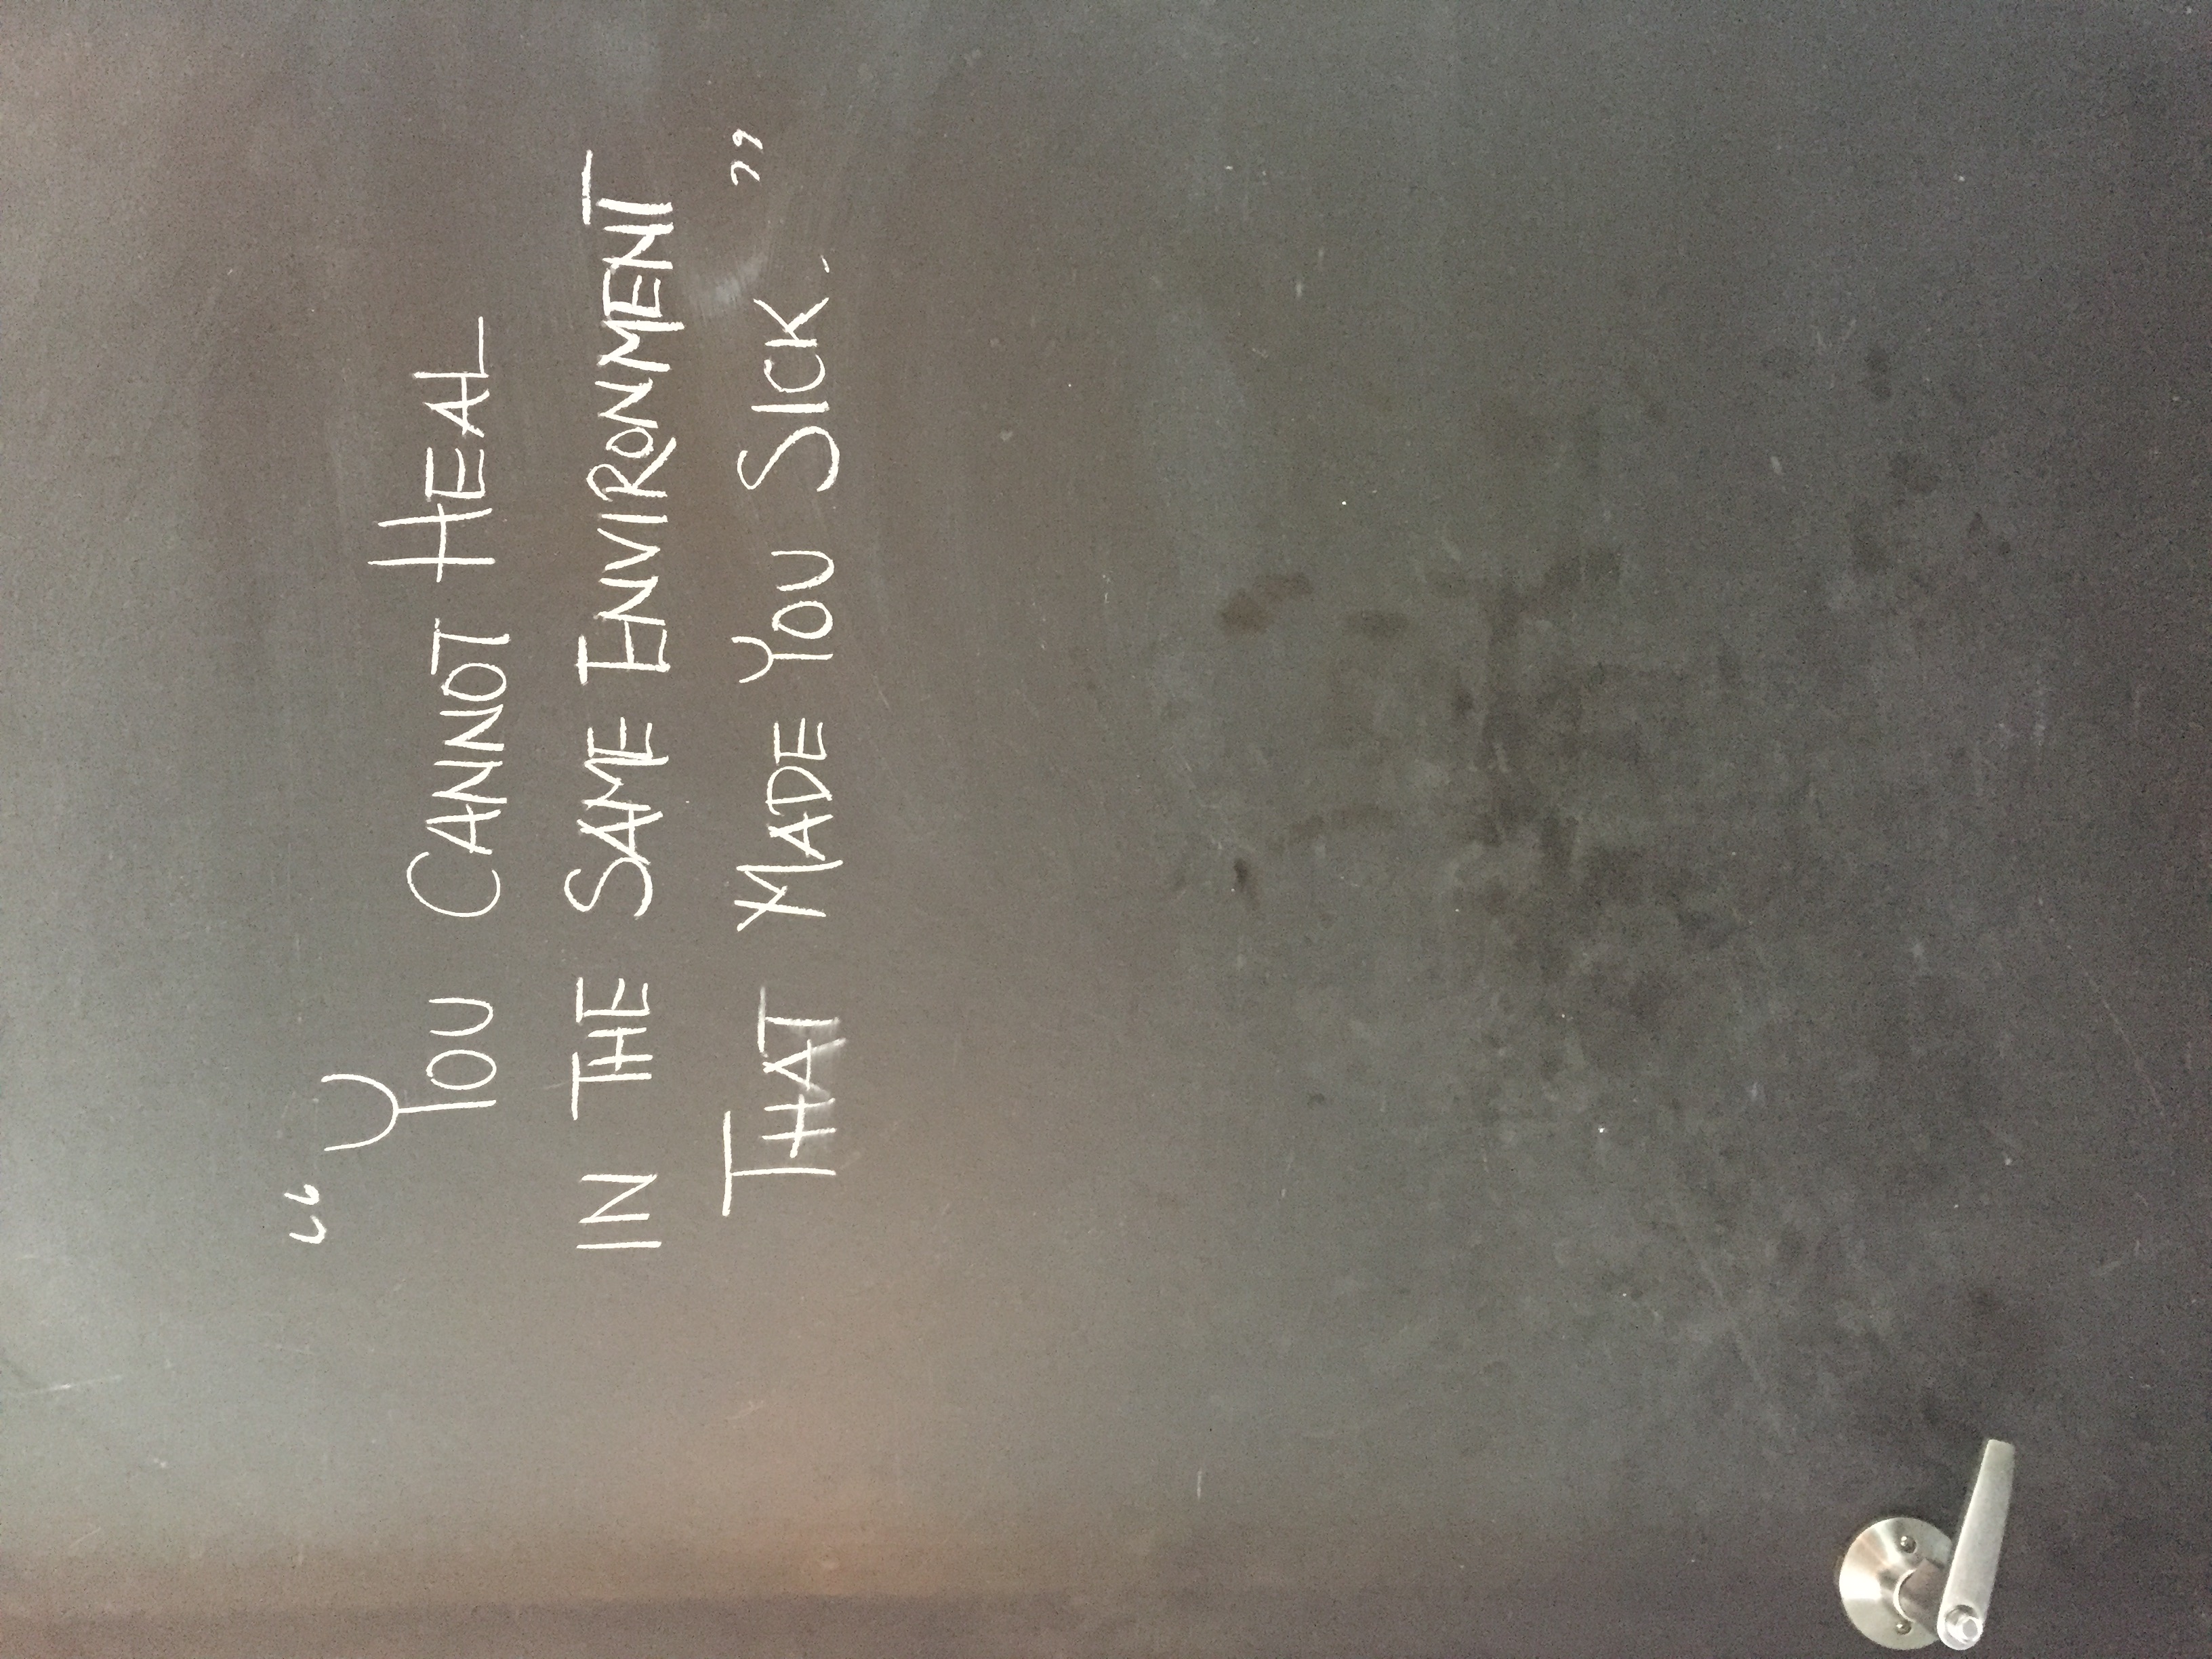 “You Cannot Heal
in the Same Environment
That Made You Sick.”